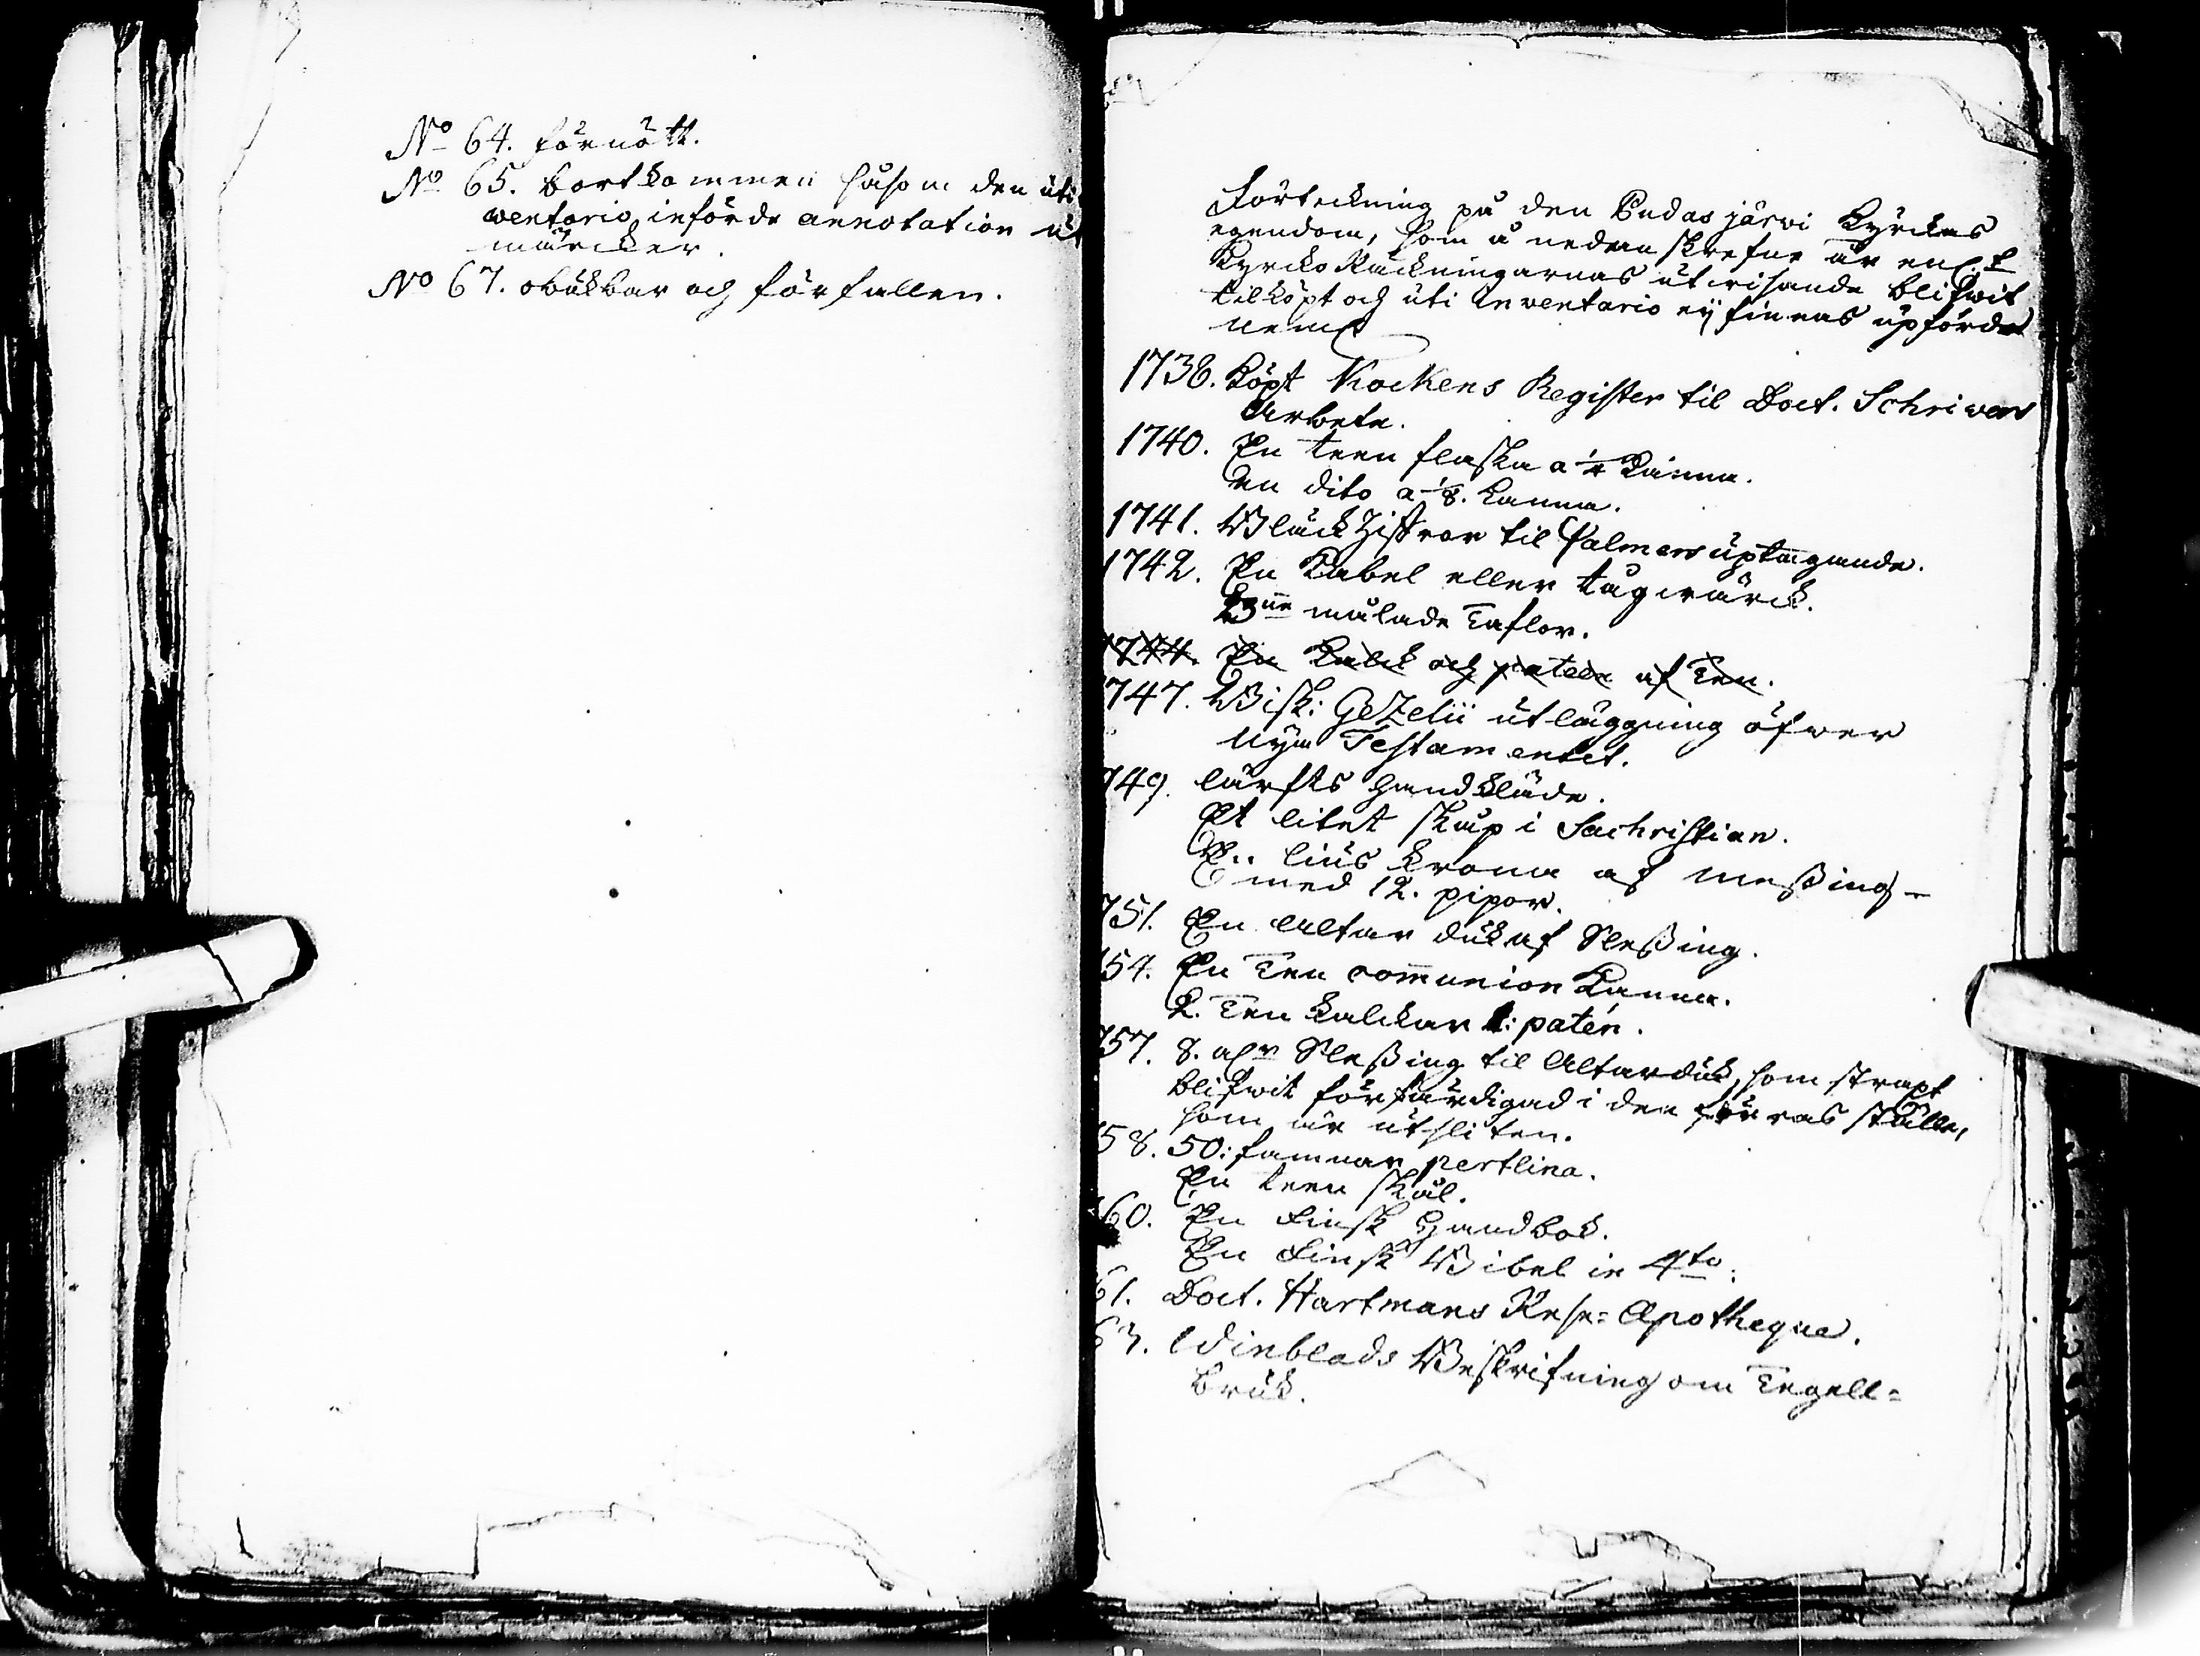 No 64. förnött.
No 65. bortkommen såsom den uti
ventario införde annotation ut
märcker.
No 67. obrukbar och förfallen.
Förteckning på den Pudasjärvi Kyrckas
egendom, som å nedanskrefne år enl.
Kyrcko Räckningarnas utvisande blifwit
tilköpt och uti Inventario ej finnas upförde
neml
1738. Köpt Kockens Register til Doct. Schrivers
Arbete.
1740. En teen flaska a 1/4 Kanna.
en dito a 1/8. Kanna.
1741. Bläck Ziffror til Psalmers uptagande.
1742. En Kabel eller tågwärck.
målade Taflor.
1744. En Kalck och paten af Ten.
747. Bisk: Gezelii utläggning öfwer
Nya Testamentet.
749. lärfts handkläde.
Et litet skåp i Sachristian.
En liuskrona af messing
med 12. pipor.
751. En Altar duk af Slessing.
54. En Ten communion Kanna.
2. Ten kalckar 1: patén.
757. 8. alnr Slessing til Altarduk, som strax
blifwit förfärdigad i den förras ställe,
som är utsliten.
58. 50: famnar pertlina.
En teen skål.
60. En Finsk Handbok.
En Finsk Bibel in 4to.
61. Doct. Hartmans Rese= Apotheque.
63. Wijnblads Beskrifning om Tegell=
bruk.